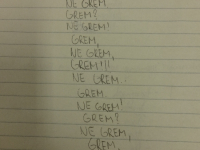 NE GREM.
GREM?
NE GREM!
GREM,
NE GREM,
GREM!!!
NE GREM..
GREM..
NE GREM!
GREM?
NE GREM,
GREM.